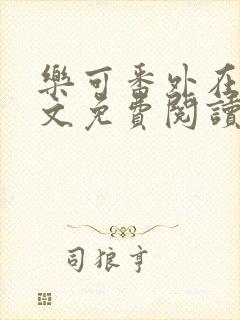 樂可番外在
文免費閱讀
司狼亨